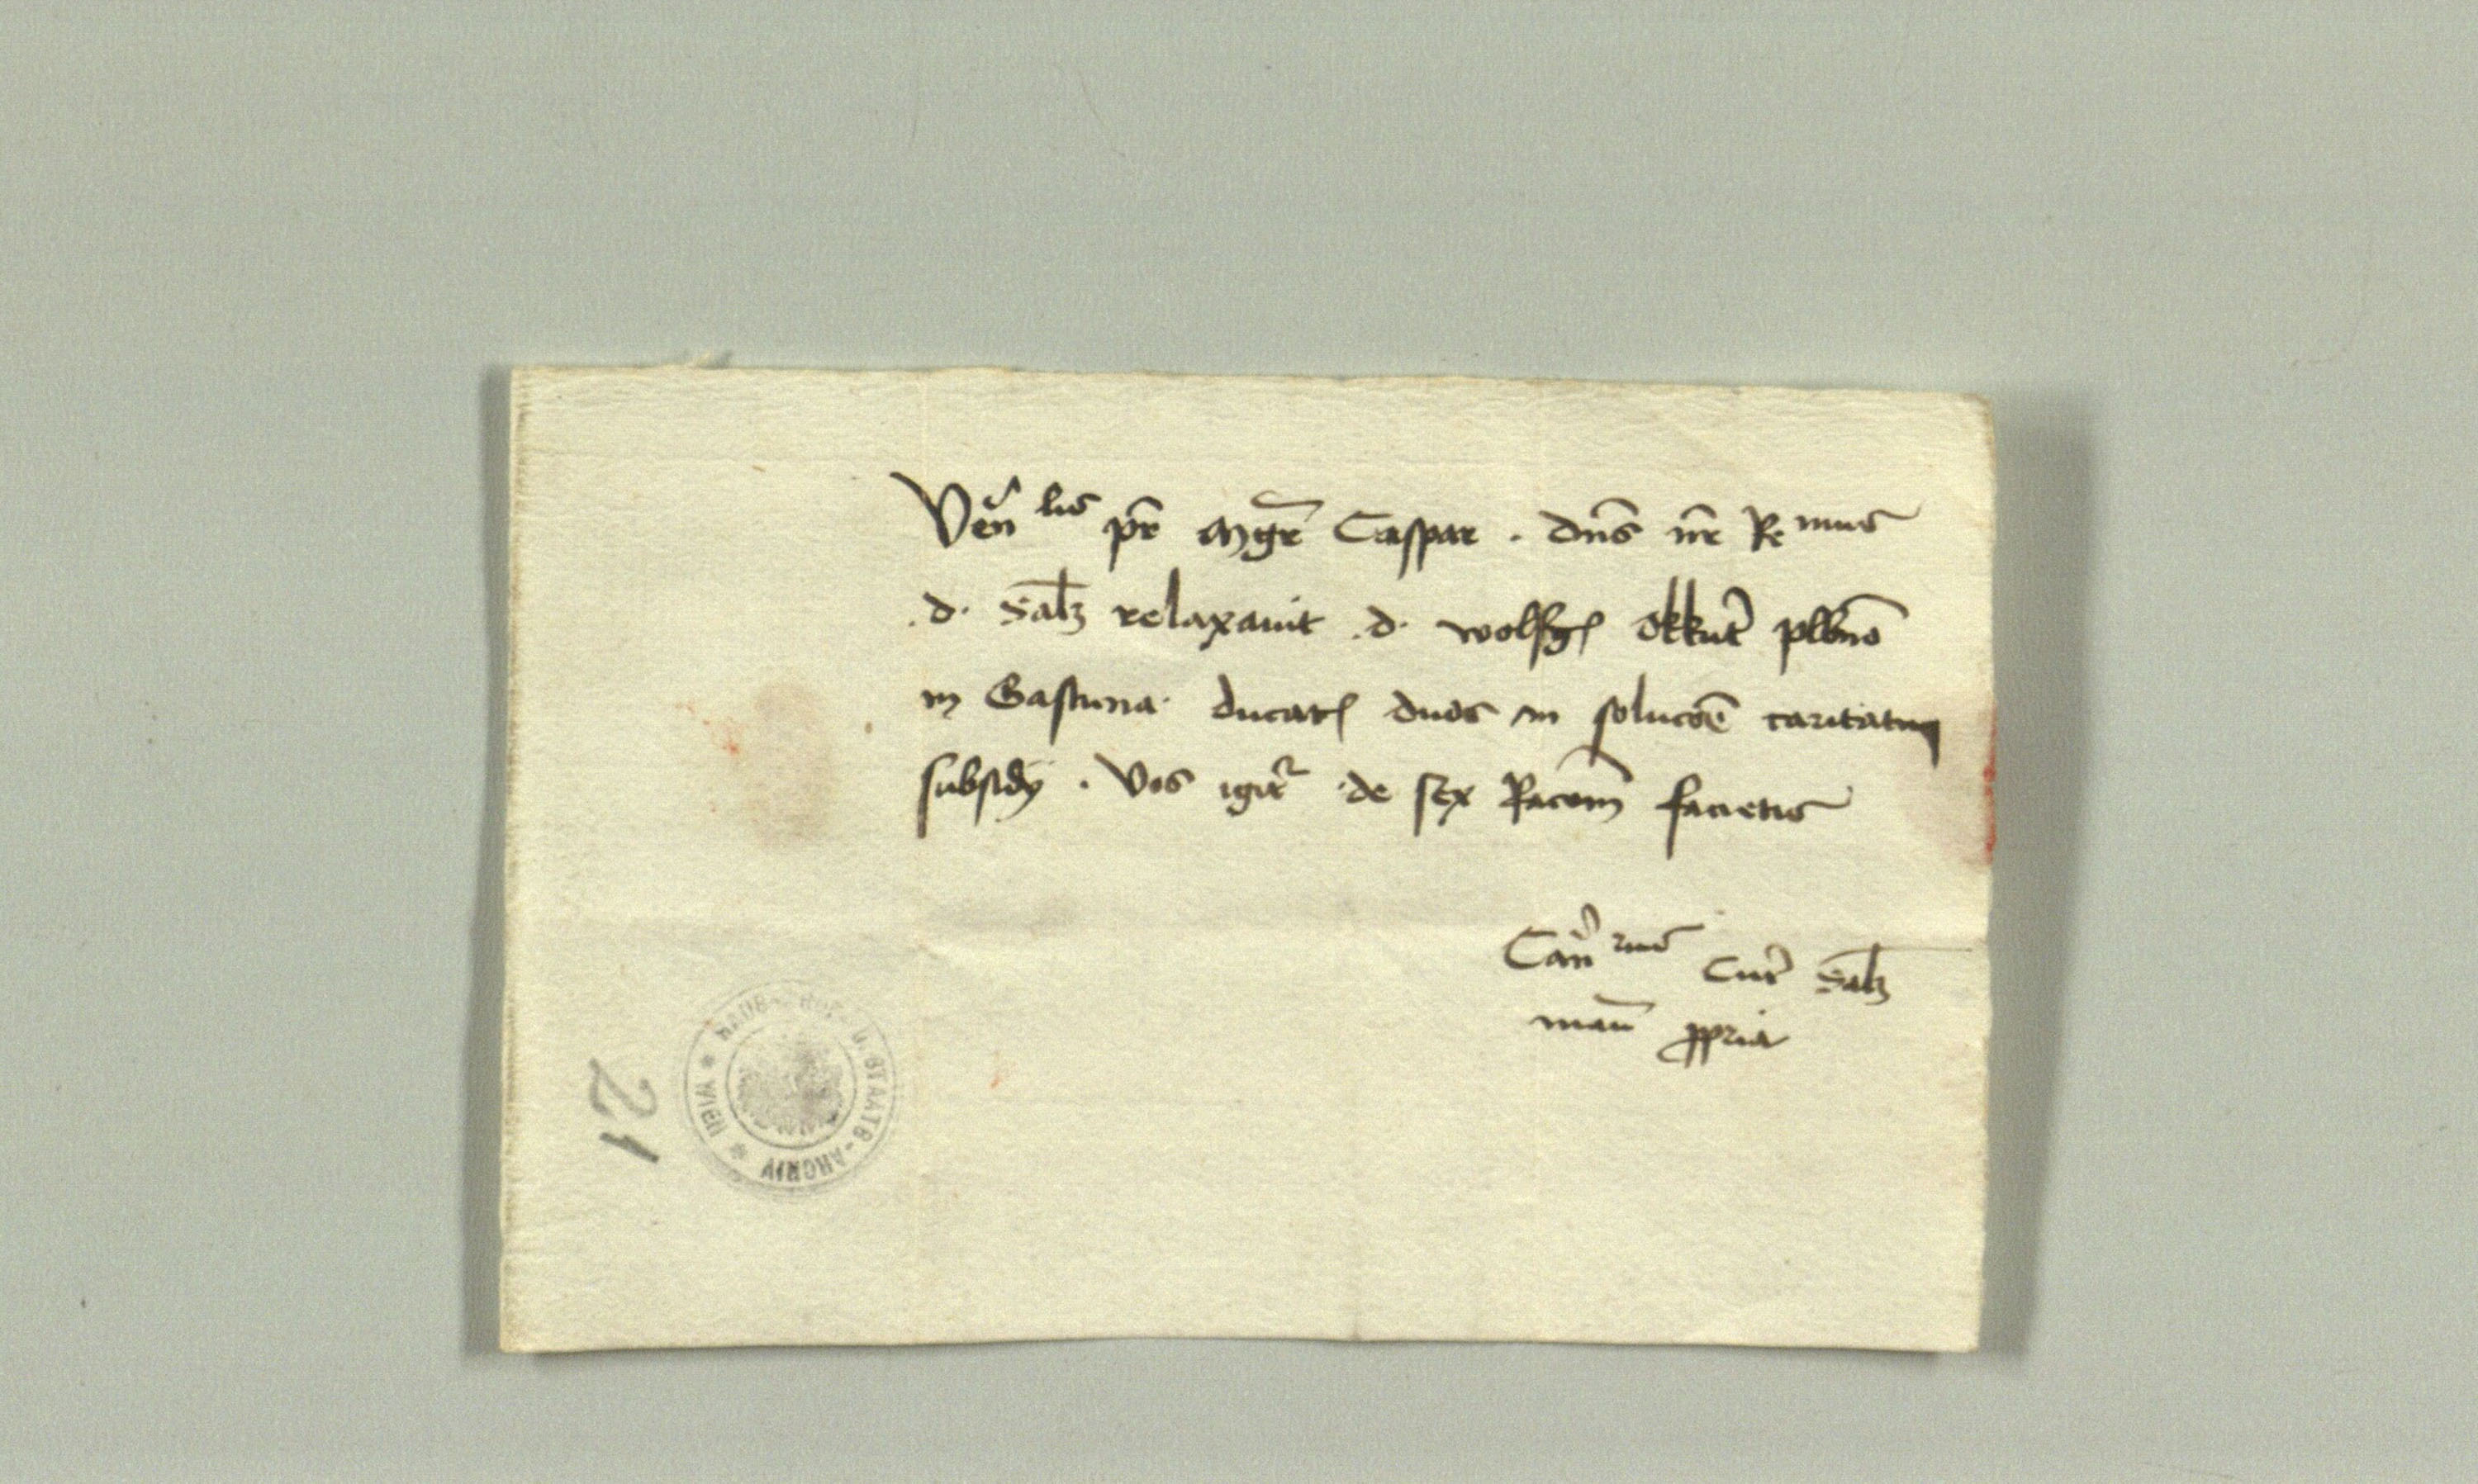 Ven̄lis pr̄ Mgr̄ Caspar . dn̄s nr̄ Re mus
.d. Salz̄ relaxauit .d. wolfḡ Okkut̄ plbn̄o
in Gastuna ducat̄ duos in soluco͞e caritatiui
subsidij . Vos igit̄ de sex Racom̄ facietis
Can̄rius Cur̄ Salz̄
man̄ ꝓpria
21
HAUS- HOF- U. STAATS-ARCHIV * WIEN *